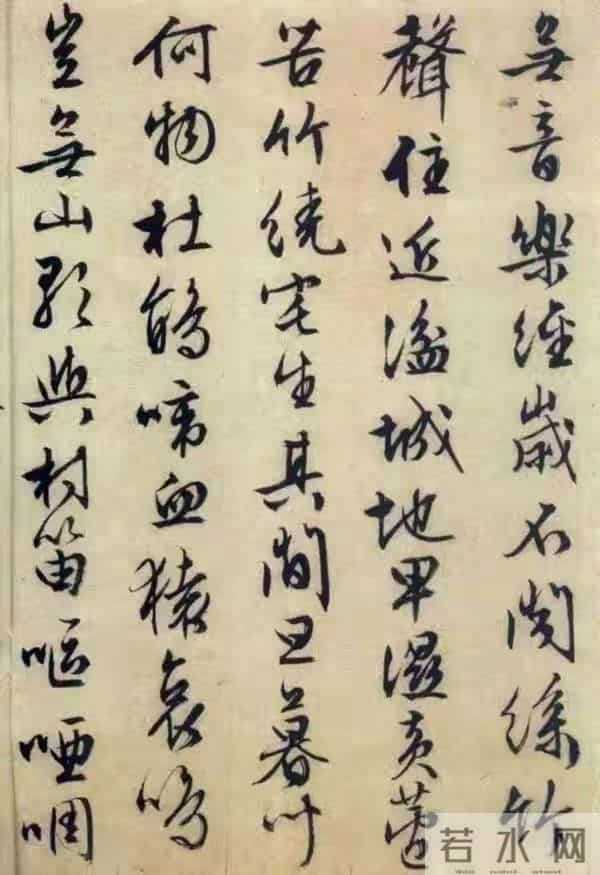 無音樂經歲不聞絲竹
聲住近湓城地卑濕黃蘆
苦竹繞宅生其間旦暮叫
何物杜鵑啼血猿哀鳴
豈無山歌與村笛嘔啞啁
若水网